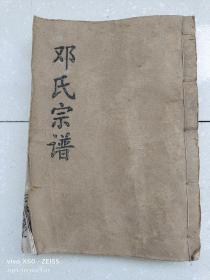 邓氏宗谱
vivo X50 · ZEISS